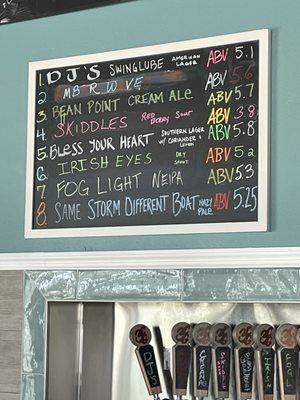 1. DJ'S SWINGLUBE AMERICAN LAGER ABV 5.1
2. ABV 5.6
3. BEAN POINT CREAM ALE ABV 5.7
4. SKIDDLES RED BERRY SOUR ABV 3.8
5. BLESS YOUR HEART SOUTHERN LAGER W/ CORIANDER & LEMON ABV 5.8
6. IRISH EYES DRY STOUT ABV 5.2
7. FOG LIGHT NEIPA ABV 5.3
8. SAME STORM DIFFERENT BOAT HAZY PALE ABV 5.25
DJ'S
CREAM
SKIDDLES
IRISH
FOG L